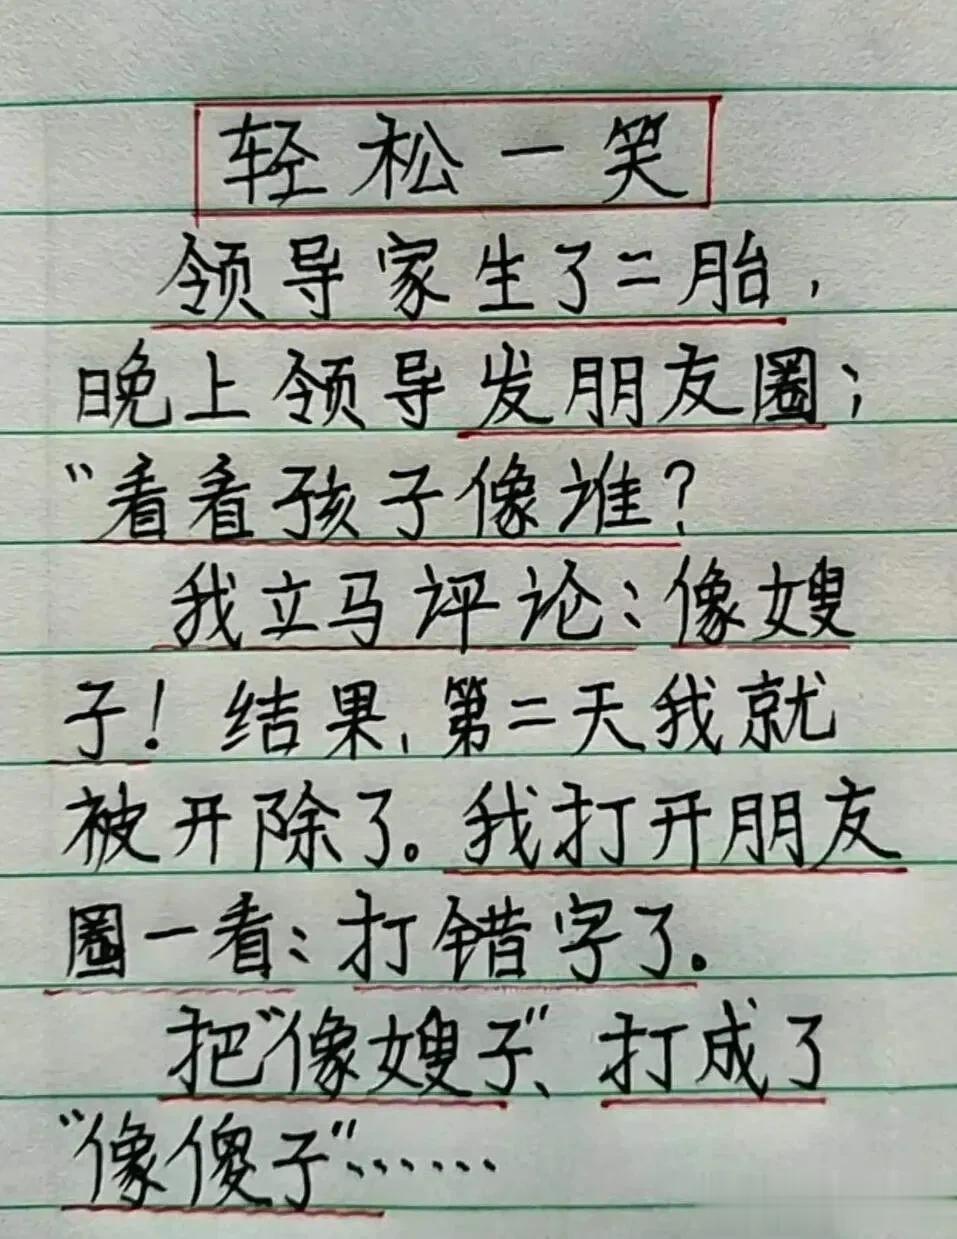 轻松一笑
领导家生了二胎,
晚上领导发朋友圈;
“看看孩子像谁?
我立马评论:像嫂
子!结果,第二天我就
被开除了。我打开朋友
圈一看:打错字了.
把“像嫂子”、打成了
“像傻子”……